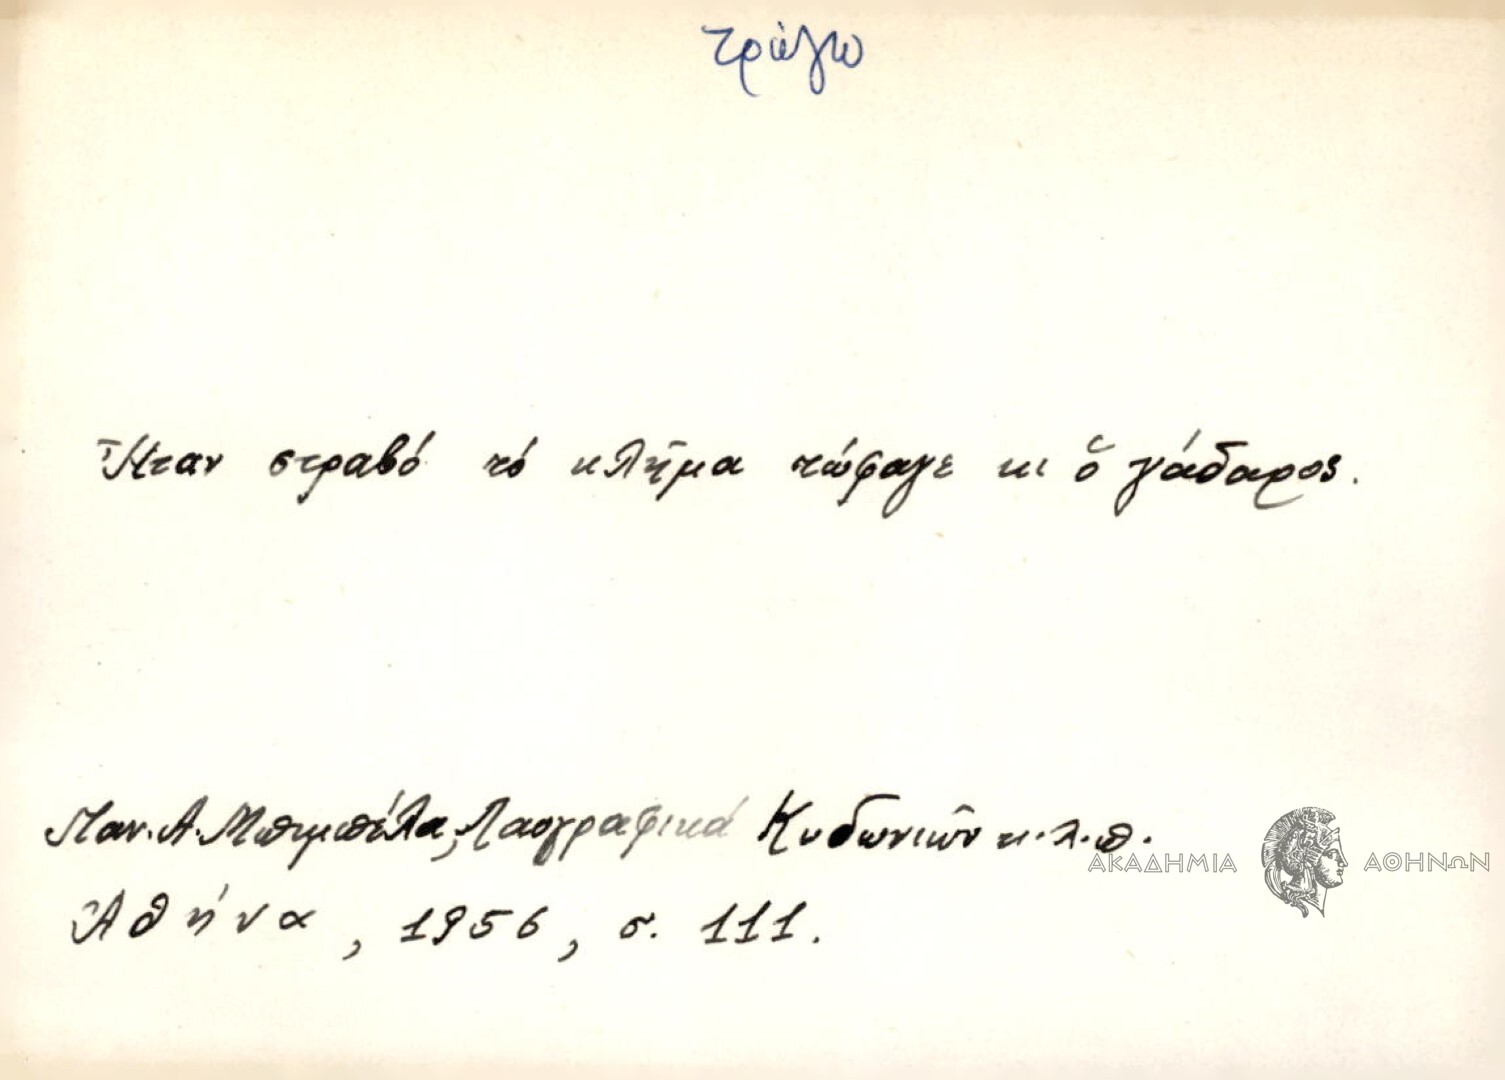 τρώγω
Ἦταν στραβό τό κλῆμα τὤφαγε κι ὁ γάδαρος.
Παν. Α. Μπιμπέλα, Λαογραφικά Κυδωνιῶν κ.λ.π.
Ἀθήνα, 1956, σ. 111.
ΑΚΑΔΗΜΙΑ ΑΘΗΝΩΝ